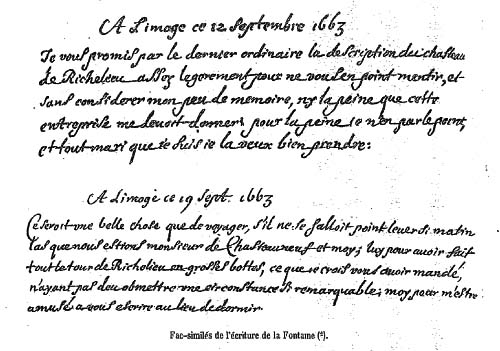 A Limoge ce 12 Septembre 1663
Je vous promis par le dernier ordinaire la description du chasteau
de Richelieu assez legerement pour ne vous en point mentir, et
sans considerer mon peu de memoire, ny la peine que cette
entreprise me devoit donner; pour la peine je n'en parle point,
et tout mari que je suis je la veux bien prendre:
A Limoge ce 19 Sept. 1663
Ce seroit une belle chose que de voyager, s'il ne se falloit point lever si matin
las que nous estions monsieur de Chasteauneuf et moy; luy pour avoir fait
tout le tour de Richelieu en grosses bottes, ce que je crois vous avoir mandé,
n'ayant pas deu obmettre une circonstance si remarquable; moy pour m'estre
amusé a vous escrire au lieu de dormir.
Fac-similés de l'écriture de la Fontaine (²).